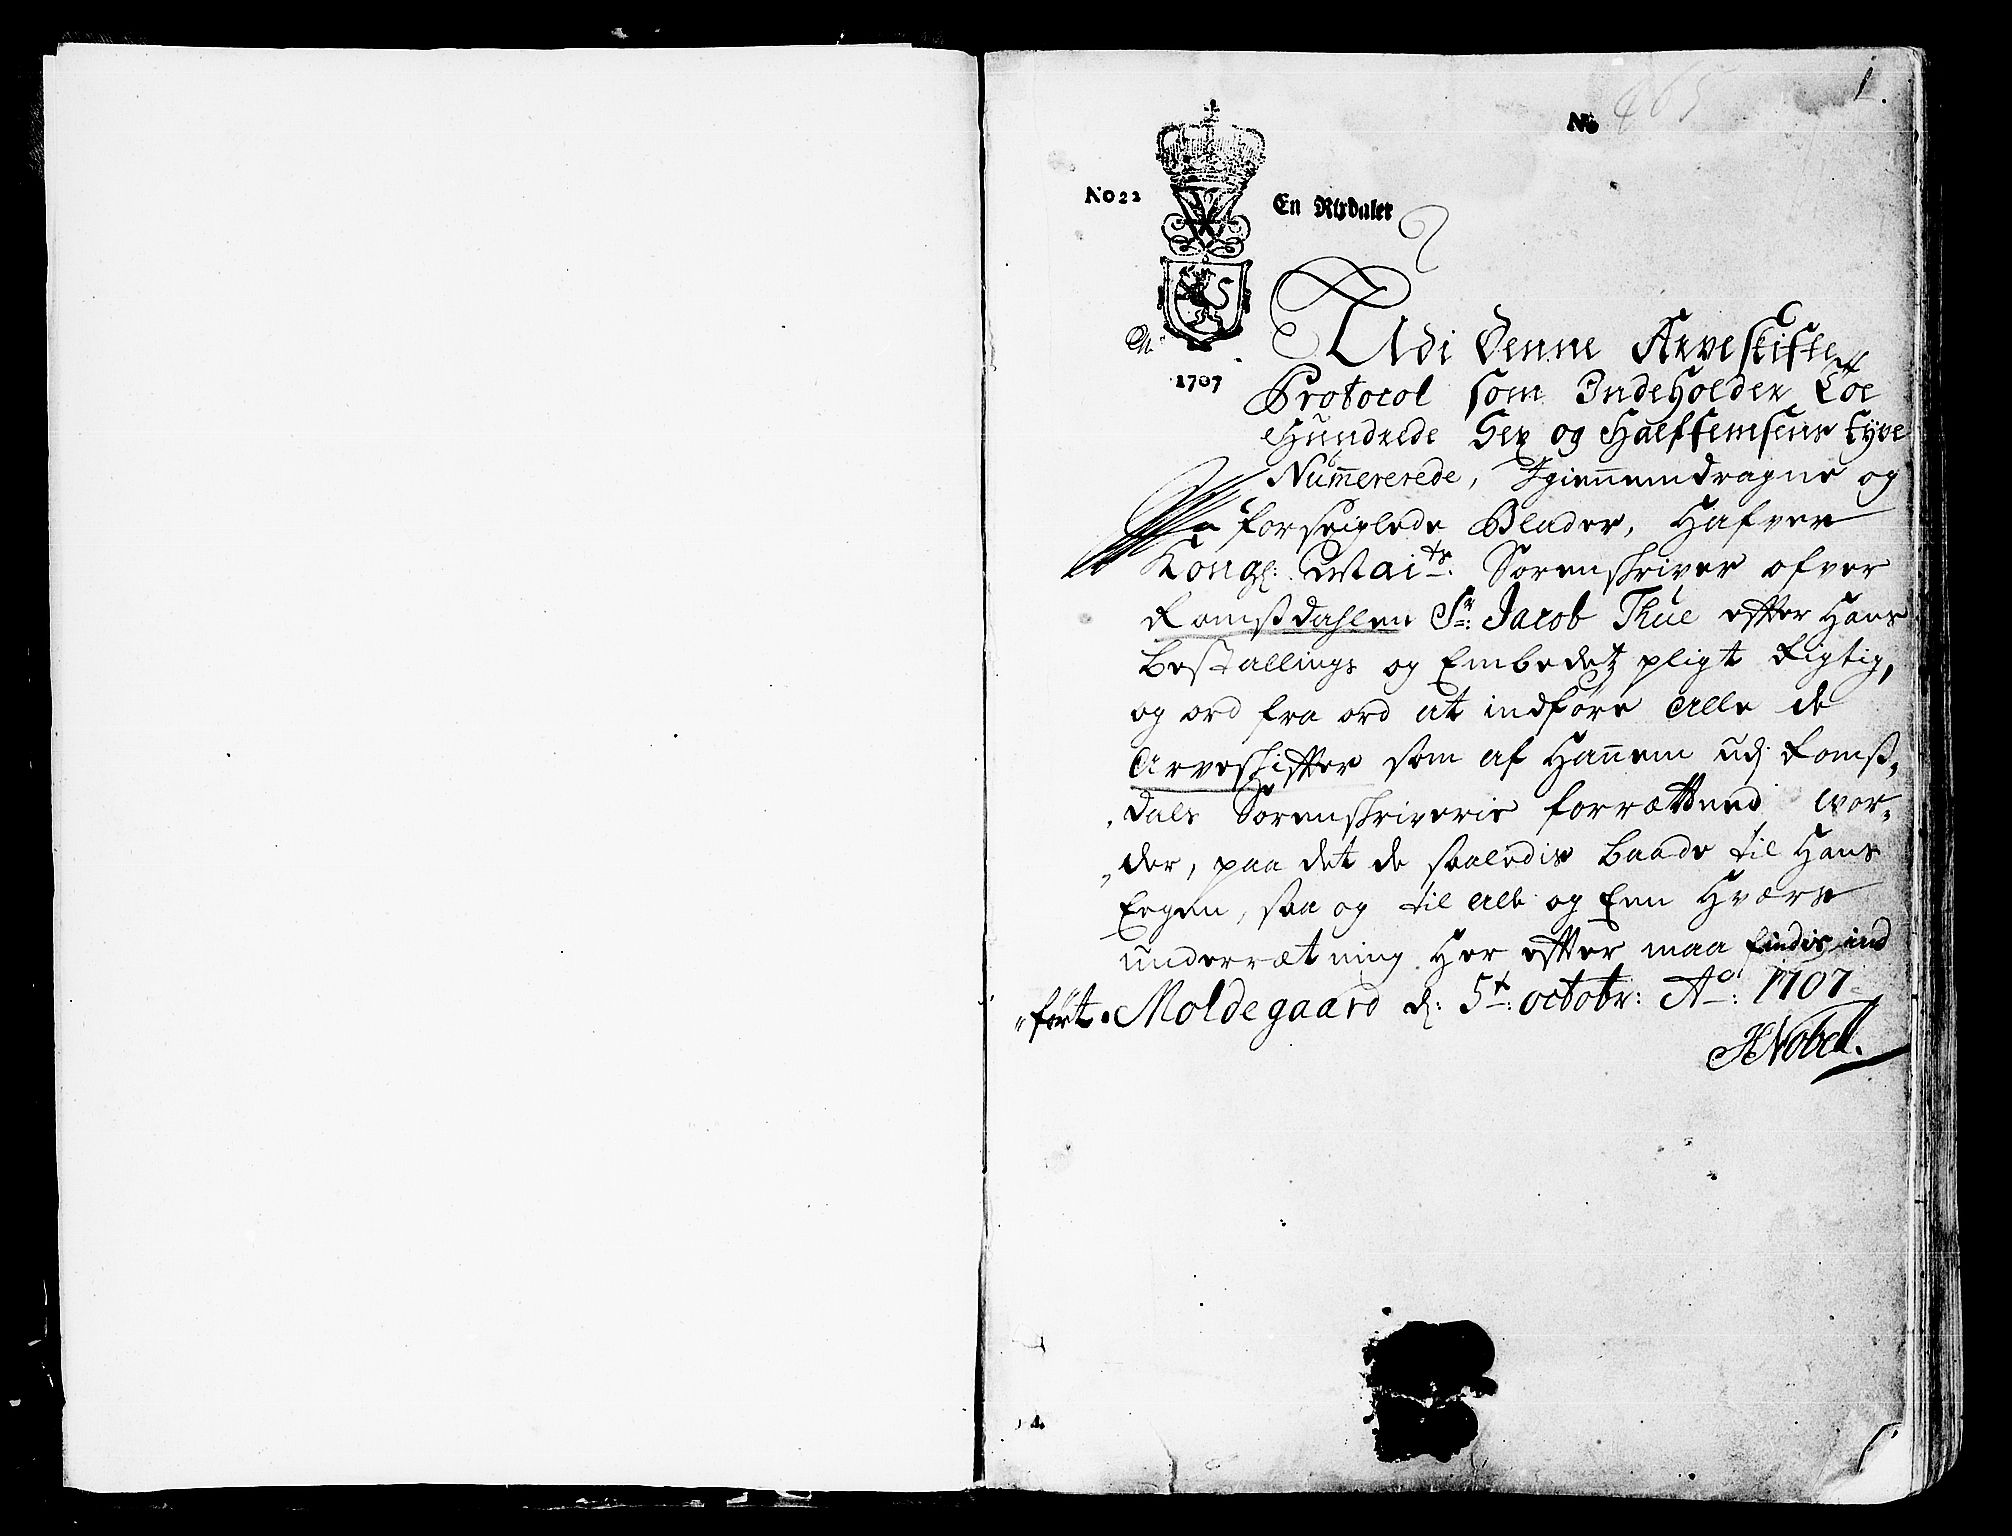 1.
No 465
No 22 En Rixdaler
1707
Udi Denne Arveskifte
Protocol som Indeholder Toe
Hundrede Sex og Halffemsens tyve
Nummererede, Igiennemdragne og
forseiglede Blader, Hafver
Kongl: Maits: Sorenskriver ofver
Romsdahlen Sr: Jacob Thue effter Hans
Bestallings og Embedetz pligt Rigtig,
og ord fra ord at indføre alle de
Arveskiffter som af Hannem udj Roms-
dals Sorenskriverie forrættend wor-
der, paa det de saaledis baade til Hans
Eegen, saa og til all og Een Hværs
underrætning Her effter maa findis ind
ført. Moldegaard d: 5t: octobr: Ao: 1707
HNobell.